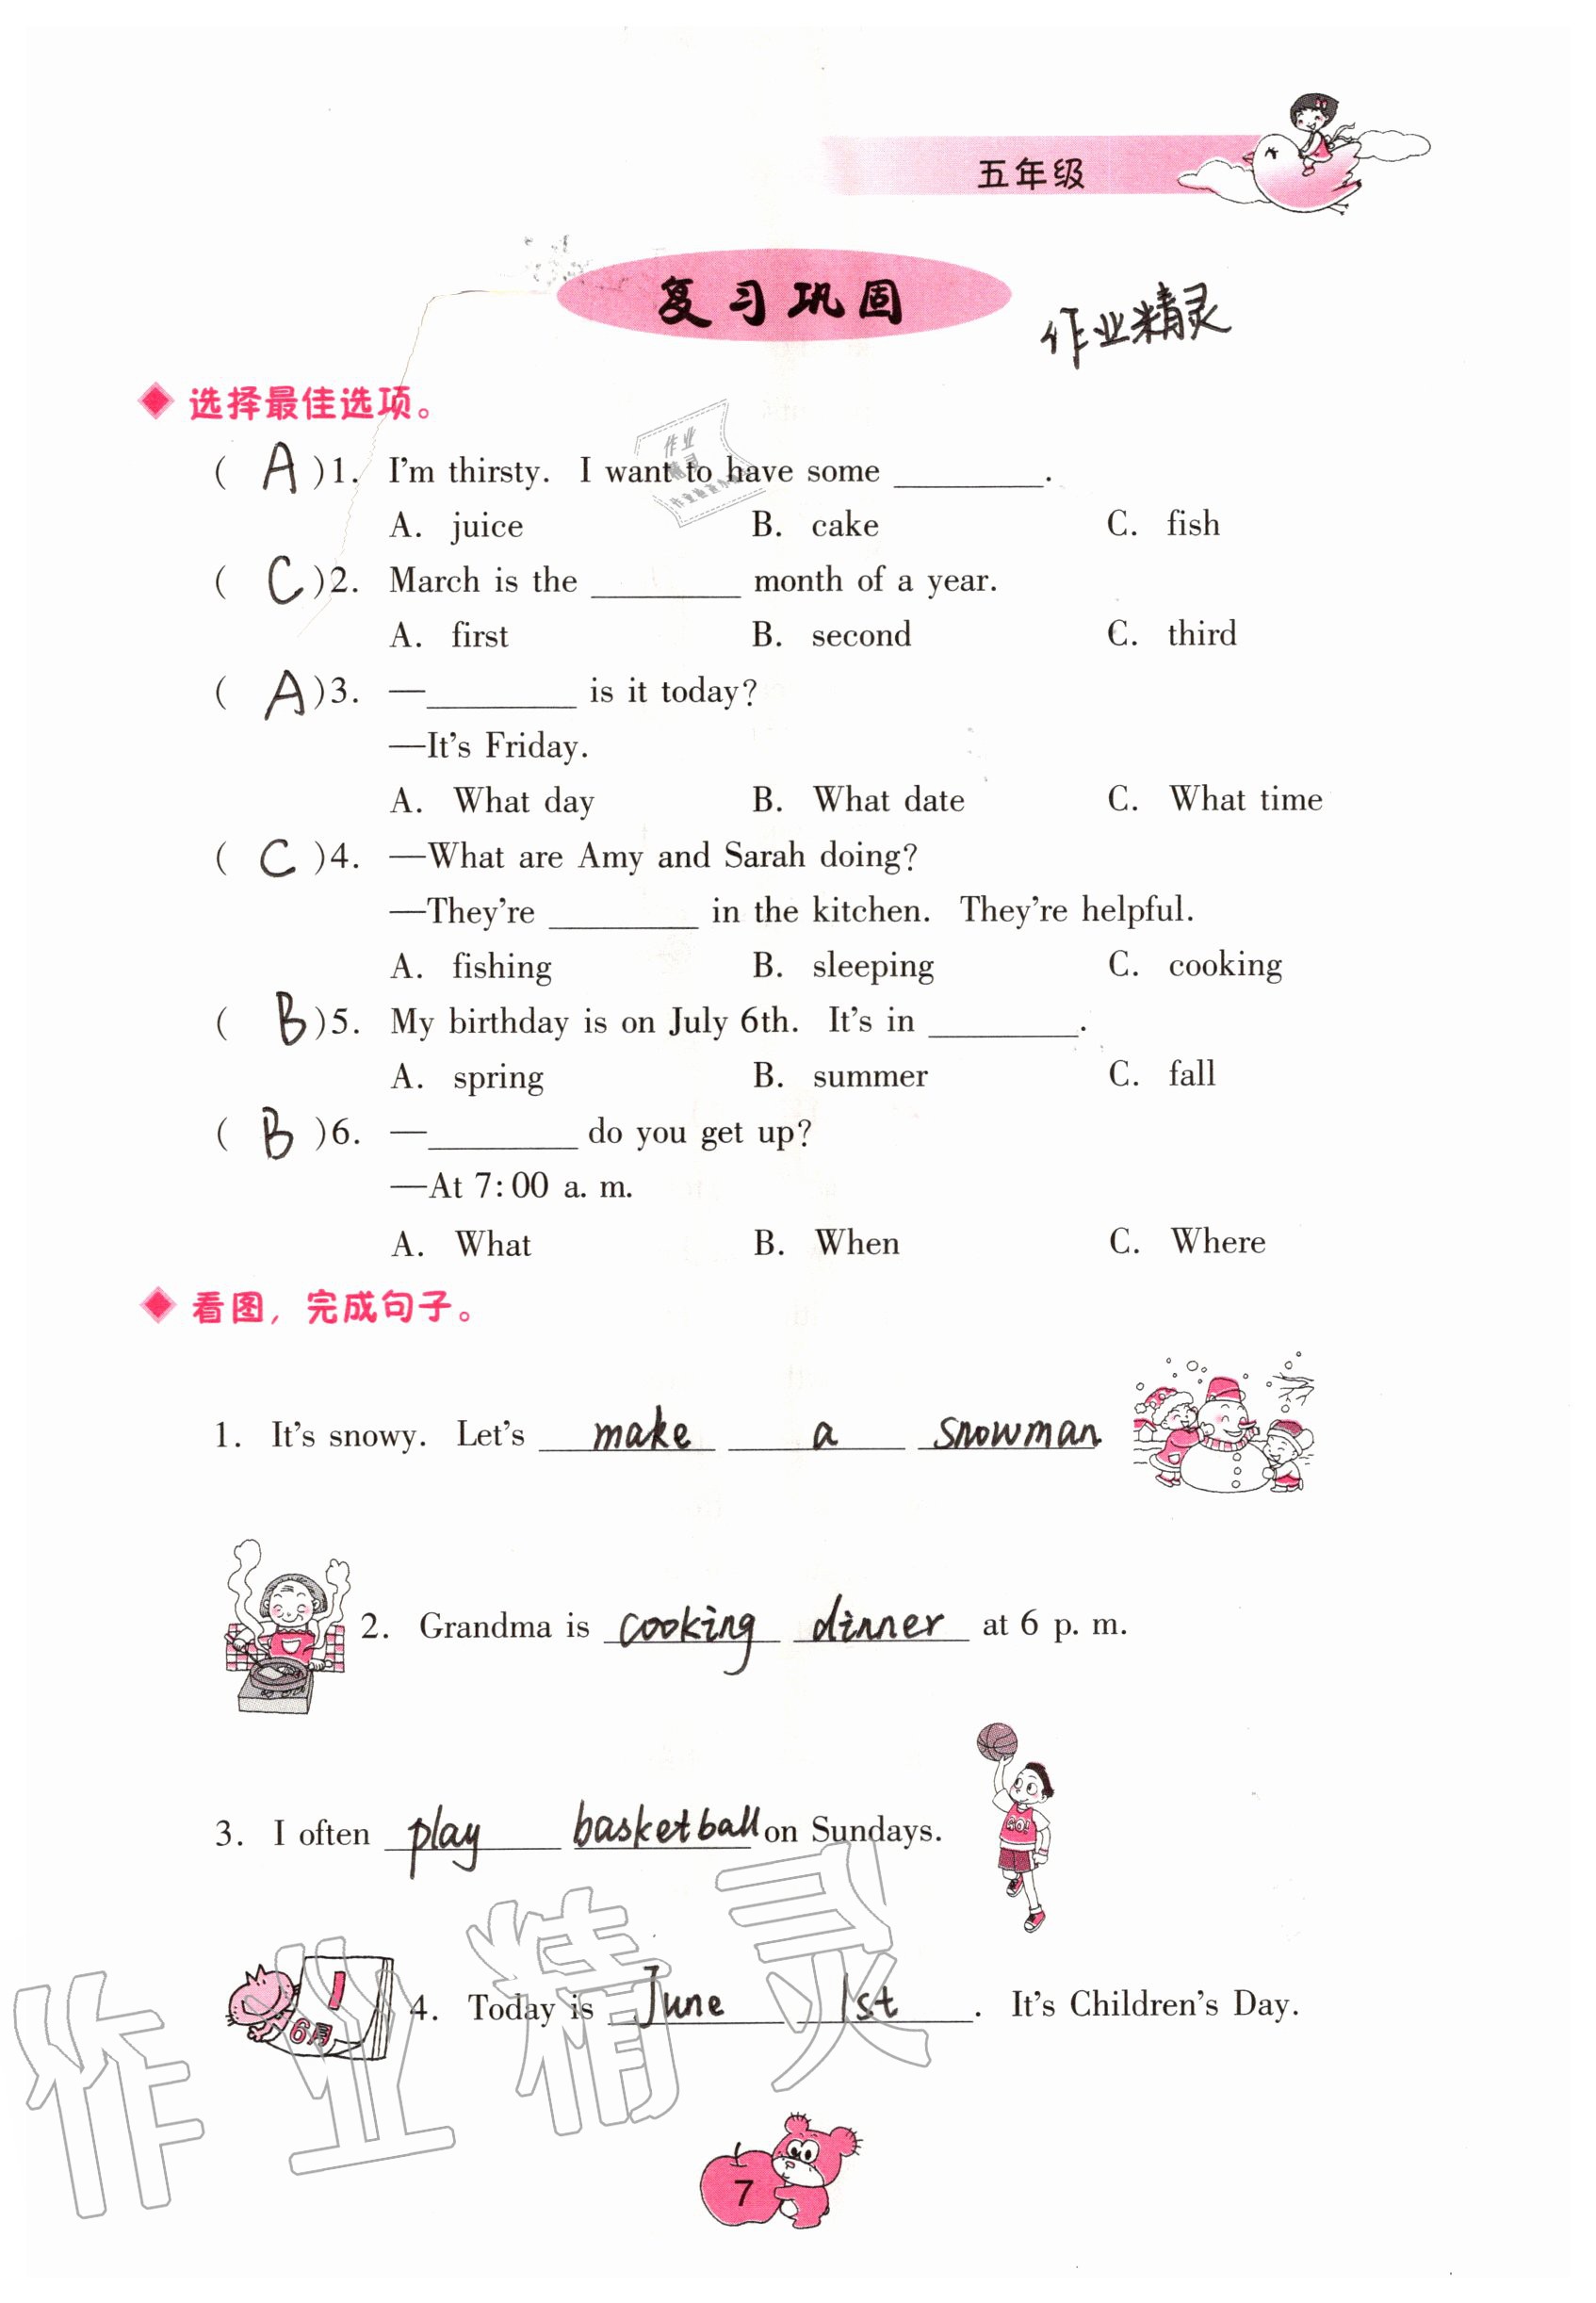 五年级
复习巩固
作业精灵
选择最佳选项。
( A )1. I'm thirsty. I want to have some ________.
A. juice B. cake C. fish
( C )2. March is the ________ month of a year.
A. first B. second C. third
( A )3. —________ is it today?
—It's Friday.
A. What day B. What date C. What time
( C )4. —What are Amy and Sarah doing?
—They're ________ in the kitchen. They're helpful.
A. fishing B. sleeping C. cooking
( B )5. My birthday is on July 6th. It's in ________.
A. spring B. summer C. fall
( B )6. —________ do you get up?
—At 7:00 a. m.
A. What B. When C. Where
看图，完成句子。
1. It's snowy. Let's make a snowman.
2. Grandma is cooking dinner at 6 p. m.
3. I often play basketball on Sundays.
1
6月
4. Today is June 1st. It's Children's Day.
作业精灵
7